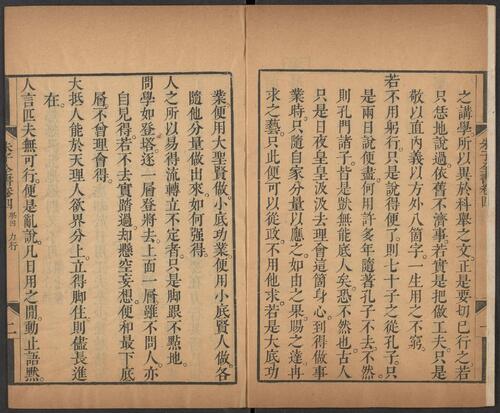 之講學所以異於科舉之文正是要切己行之若
只恁地說過依舊不濟事若實是把做工夫只是
敬以直內義以方外八箇字一生用之不窮
若不用躬行只是說得便了則七十子之從孔子只
是兩日說便盡何用許多年隨著孔子不去不然
則孔門諸子皆是獃無能底人矣恐不然也古人
只是日夜皇皇汲汲去理會這箇身心到得做事
業時只隨自家分量以應之如由之果賜之達冉
求之藝只此便可以從政不用他求若是大底功
朱子全書卷四
一
業便用大聖賢做小底功業便用小底賢人做各
隨他分量做出來如何強得
人之所以易得流轉立不定者只是腳跟不點地
問學如登塔逐一層登將去上面一層雖不問人亦
自見得若不去實踏過却懸空妄想便和最下底
層不曾理會得
大抵人能於天理人欲界分上立得腳住則儘長進
在
人言匹夫無可行便是亂說凡日用之閒動止語默
朱子全書卷四
學四
力行
二